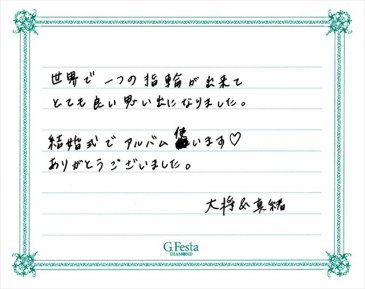 世界で一つの指輪が出来て
とても良い思い出になりました。
結婚式でアルバム使います♡
ありがとうございました。
大将&真緒
G.Festa
DIAMOND